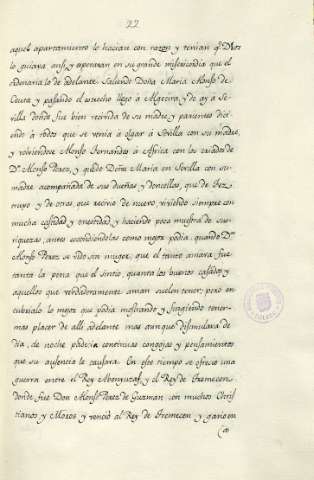 22
aquel apartamiento lo hacian con razon y tenian q̃ Dios
lo guiara ansi, y esperavan en su grande misericordia que el
adelante. Saliendo Doña Maria Alonso de
Ceuta y pasando el estrecho llego à Algecira, y de ay a Se
villa donde fue bien recivida de su madre y parientes dici
endo à todos que se venia à olgar à Sevilla con su madre,
y volviendose Alonso Fernandes à Africa con los criados de
Dⁿ Alonso Perez, y quedo Doña Maria en Sevilla con su
madre acompañada de sus dueñas y doncellas, que de Fez
truxo y de otras que recivio de nuevo viviendo siempre con
mucha castidad y onestidad y haciendo poca muestra de sus
riquezas, antes escondiendolas como mejor podia. quando Dⁿ
Alonso Perez se vido sin muger, que el tanto amara fue
tanta la pena que el sintio, quanta los buenos casados y
aquellos que verdaderamente aman suelen tener, pero en
cubriolo lo mejor que podia mostrando y fingiendo tener
mas placer de alli adelante mas aunque disimulara de
dia, de noche padecia continuas congojas y pensamientos
que su ausencia le causara. En este tiempo se ofrecio una
guerra entre el Rey Abenyuzaf y el Rey de Tremecen,
donde fue Don Alonso Perez de Guzman con muchos Chris
tianos y Moros y vencio al Rey de Tremecen y gano en